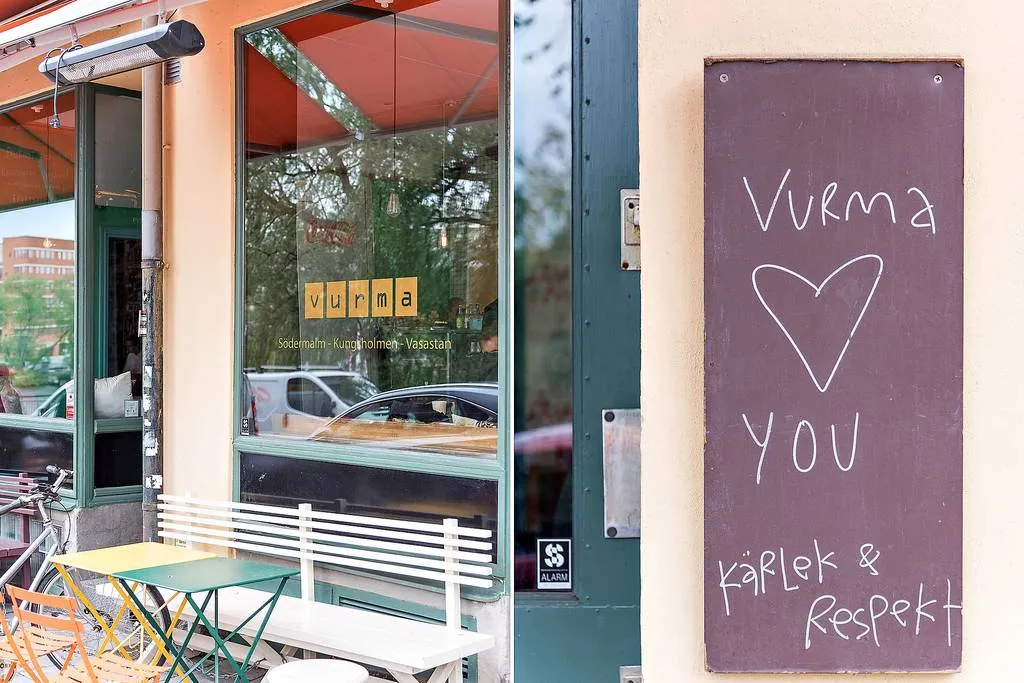 vurma
Södermalm - Kungsholmen - Vasastan
S
ALARM
VURMA
YOU
KÄRLEK &
RESPEKT